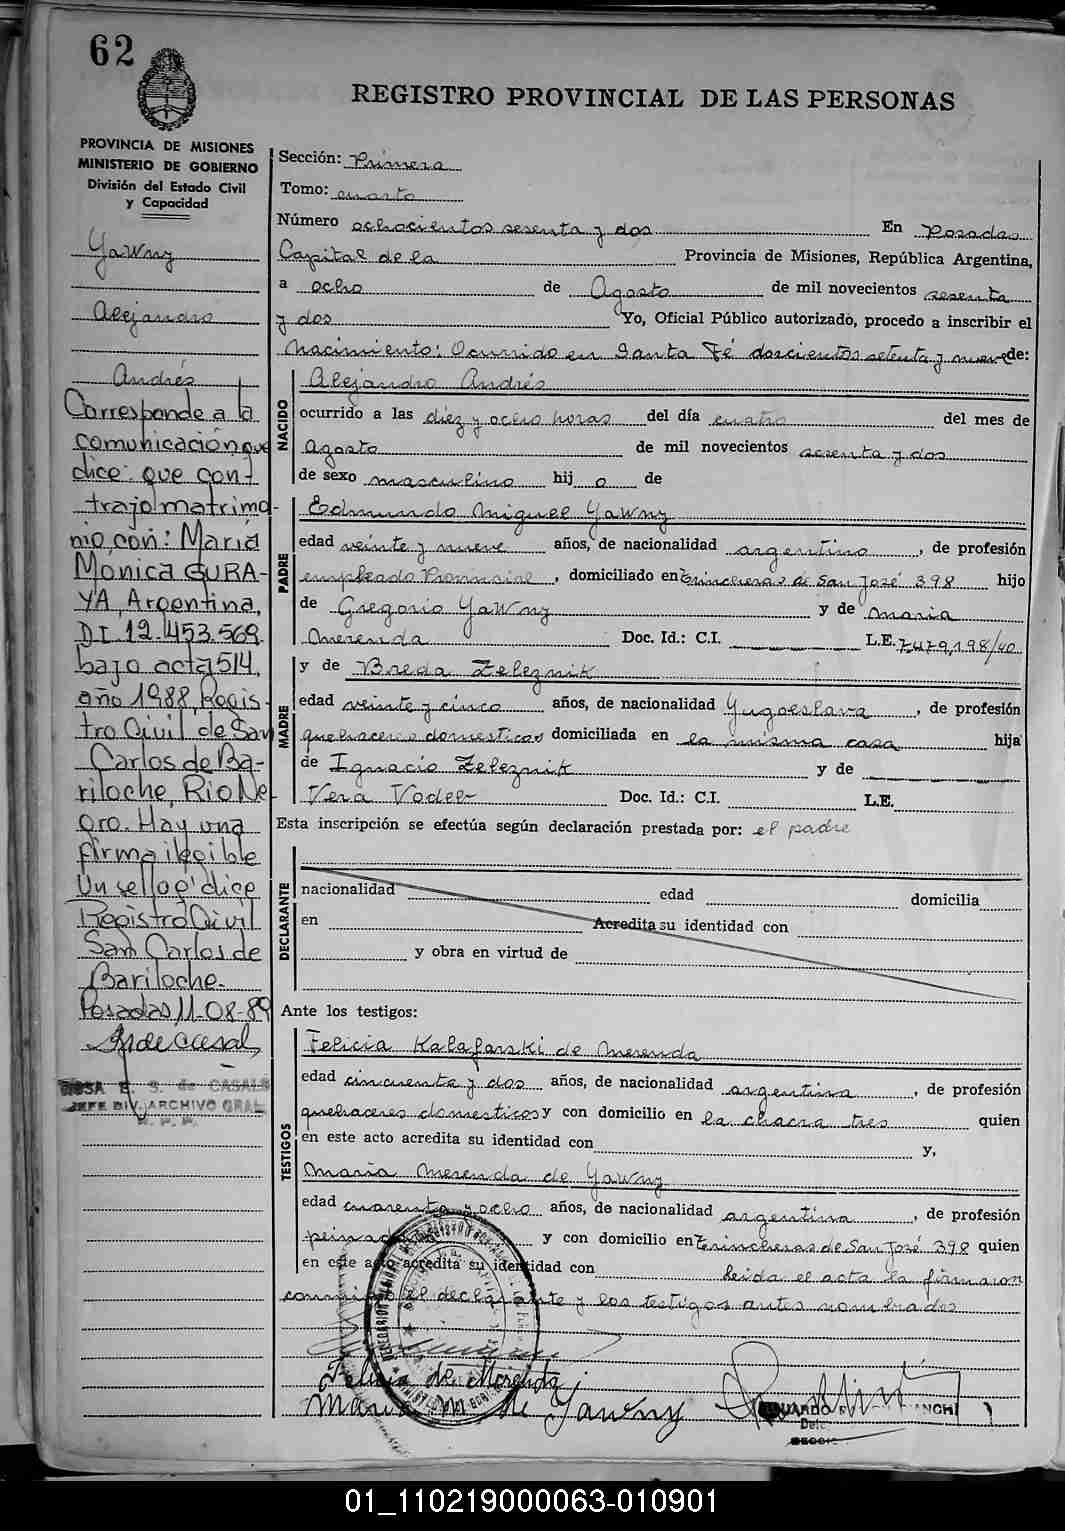 62
REGISTRO PROVINCIAL DE LAS PERSONAS
PROVINCIA DE MISIONES
MINISTERIO DE GOBIERNO
División del Estado Civil
y Capacidad
Yawny
Alejandro
Andrés
Corresponde a la
comunicación que
dice: que con-
trajo matrimo-
nio, con: María
Monica GURA-
YA, Argentina,
DI. 12.453.569
bajo acta 514,
año 1988, Regis-
tro Civil de San
Carlos de Ba-
riloche, Rio Ne-
gro. Hay una
firma ilegible
Un sello q' dice
Registro Civil
San Carlos de
Bariloche.
Posadas 11-08-89
E. S. de CASALS
JEFE DIV. ARCHIVO GRAL
R. P. P.
Sección: Primera
Tomo: cuarto
Número ochocientos sesenta y dos En Posadas
Capital de la Provincia de Misiones, República Argentina,
a ocho de Agosto de mil novecientos sesenta
y dos Yo, Oficial Público autorizado, procedo a inscribir el
Nacimiento: Ocurrido en Santa Fé doscientos setenta y nueve de:
NACIDO
Alejandro Andrés
ocurrido a las diez y ocho horas del día cuatro del mes de
Agosto de mil novecientos sesenta y dos
de sexo masculino hij o de
PADRE
Edmundo Miguel Yawny
edad veinte y nueve años, de nacionalidad argentino, de profesión
empleado Provincial, domiciliado en Trincheras de San José 398 hijo
de Gregorio Yawny y de María
Merenda Doc. Id.: C.I. L.E. 7479,198/40
MADRE
y de Breda Zeleznik
edad veinte y cinco años, de nacionalidad Yugoeslava, de profesión
quehaceres domesticos domiciliada en la misma casa hija
de Ignacio Zeleznik y de
Vera Vodeb Doc. Id.: C.I. L.E.
Esta inscripción se efectúa según declaración prestada por: el padre
DECLARANTE
nacionalidad edad domicilia
en Acredita su identidad con
y obra en virtud de
Ante los testigos:
TESTIGOS
Felicia Kalafarski de Merenda
edad cincuenta y dos años, de nacionalidad argentina, de profesión
quehaceres domesticos y con domicilio en la chacra tres quien
en este acto acredita su identidad con y,
María Merenda de Yawny
edad cuarenta y ocho años, de nacionalidad argentina, de profesión
y con domicilio en Trincheras de San José 398 quien
en este acto acredita su identidad con Leida el acta la firmaron
conmigo el declarante y los testigos antes nombrados
Felicia de Merenda
Maria M. de Yawny
01_110219000063-010901